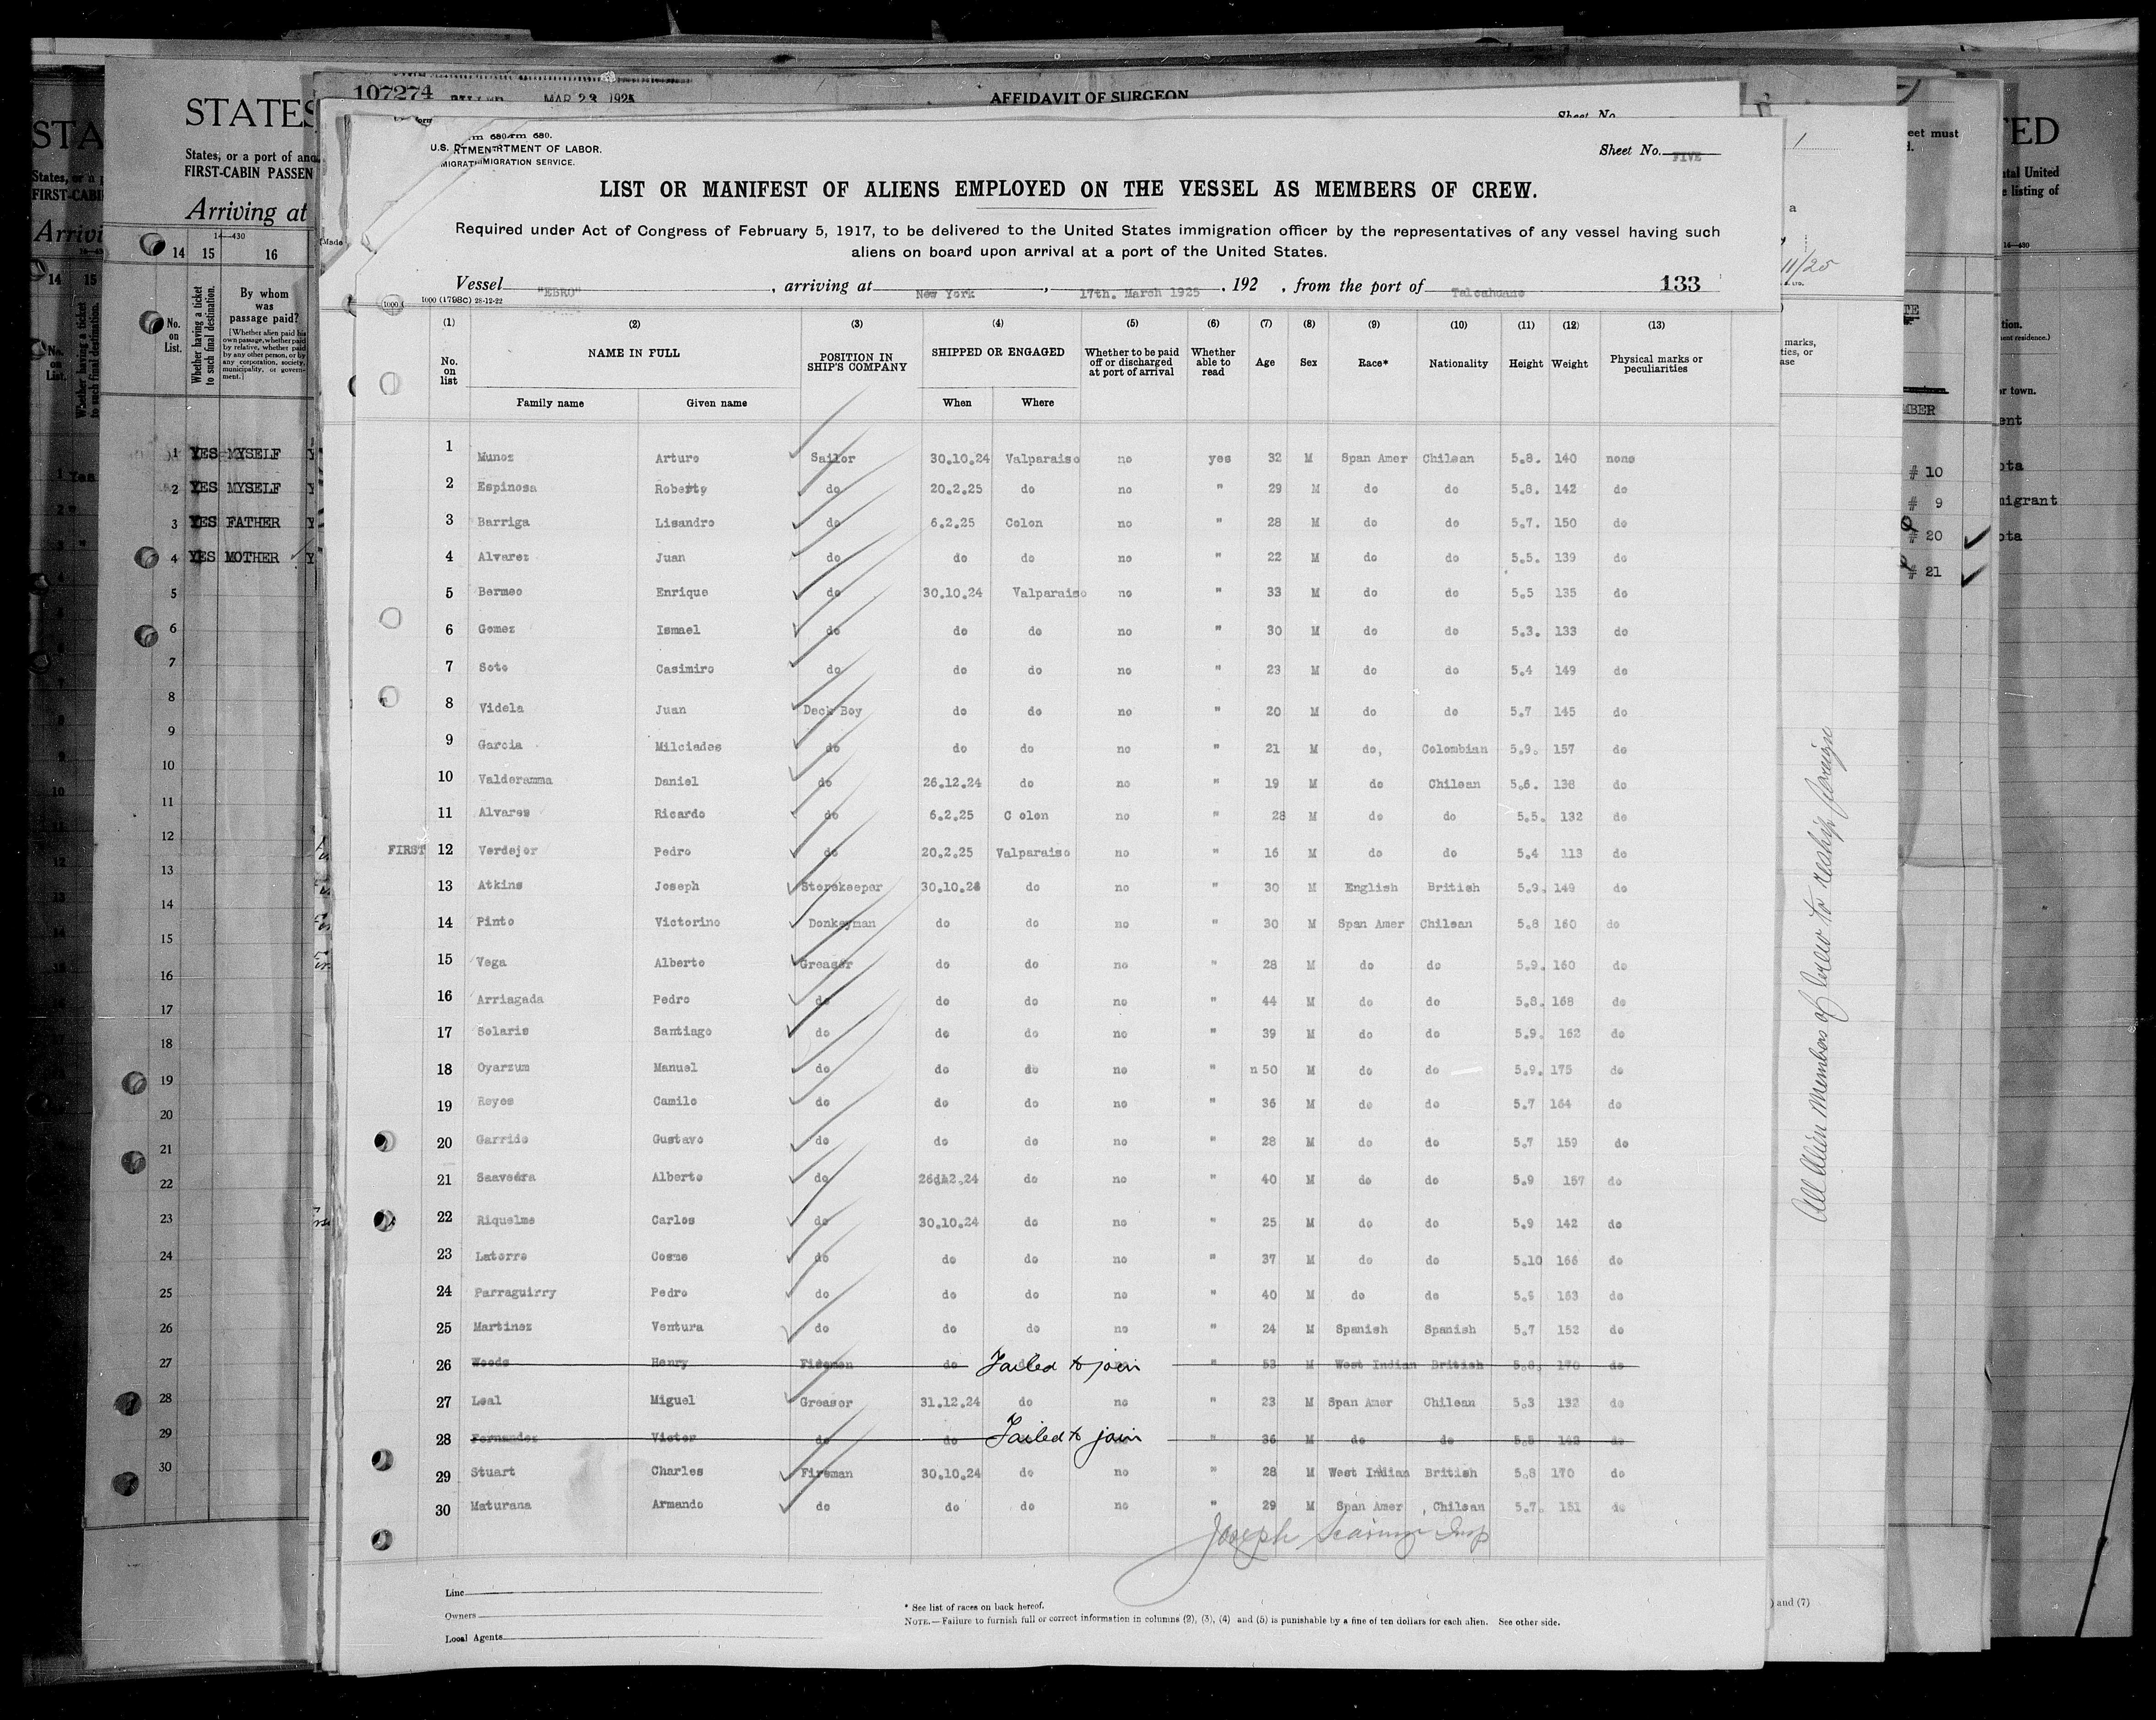 107274
MAR 23 1925
AFFIDAVIT OF SURGEON
Sheet No.
STATES
States, or a port of
FIRST-CABIN PASSEN
Arriving at
14—430
14 15 16
No. on List.
Whether having a ticket to such final destination.
By whom was passage paid?
(Whether alien paid his own passage, whether paid by relative, whether paid by any other person, or by any corporation, society, municipality, or government.)
1 YES MYSELF
2 YES MYSELF
3 YES FATHER
4 YES MOTHER
5
6
7
8
9
10
11
12
13
14
15
16
17
18
19
20
21
22
23
24
25
26
27
28
29
30
rm 680.
U.S. DEPARTMENT OF LABOR.
IMMIGRATION SERVICE.
Sheet No. FIVE
LIST OR MANIFEST OF ALIENS EMPLOYED ON THE VESSEL AS MEMBERS OF CREW.
Required under Act of Congress of February 5, 1917, to be delivered to the United States immigration officer by the representatives of any vessel having such
aliens on board upon arrival at a port of the United States.
Vessel "EBRO", arriving at New York, 17th. March 1925, 192 , from the port of Talcahuano 133
1000 (1798C) 28-12-22
(1) (2) (3) (4) (5) (6) (7) (8) (9) (10) (11) (12) (13)
No. on list NAME IN FULL POSITION IN SHIP'S COMPANY SHIPPED OR ENGAGED Whether to be paid off or discharged at port of arrival Whether able to read Age Sex Race* Nationality Height Weight Physical marks or peculiarities
Family name Given name When Where
1 Munoz Arturo Sailor 30.10.24 Valparaiso no yes 32 M Span Amer Chilean 5.8. 140 none
2 Espinosa Roberty do 20.2.25 do no " 29 M do do 5.8. 142 do
3 Barriga Lisandro do 6.2.25 Colon no " 28 M do do 5.7. 150 do
4 Alvarez Juan do do do no " 22 M do do 5.5. 139 do
5 Bermeo Enrique do 30.10.24 Valparaiso no " 33 M do do 5.5 135 do
6 Gomez Ismael do do do no " 30 M do do 5.3. 133 do
7 Soto Casimiro do do do no " 23 M do do 5.4 149 do
8 Videla Juan Deck Boy do do no " 20 M do do 5.7 145 do
9 Garcia Milciades do do do no " 21 M do, Colombian 5.9. 157 do
10 Valderamma Daniel do 26.12.24 do no " 19 M do Chilean 5.6. 138 do
11 Alvares Ricardo do 6.2.25 C olon no " 28 M do do 5.5. 132 do
FIRST 12 Verdejor Pedro do 20.2.25 Valparaiso no " 16 M do do 5.4 113 do
13 Atkins Joseph Storekeeper 30.10.24 do no " 30 M English British 5.9. 149 do
14 Pinto Victorino Donkeyman do do no " 30 M Span Amer Chilean 5.8 160 do
15 Vega Alberto Greaser do do no " 28 M do do 5.9. 160 do
16 Arriagada Pedro do do do no " 44 M do do 5.8. 168 do
17 Solaris Santiago do do do no " 39 M do do 5.9. 162 do
18 Oyarzum Manuel do do do no " n 50 M do do 5.9. 175 do
19 Reyes Camilo do do do no " 36 M do do 5.7 164 do
20 Garrido Gustavo do do do no " 28 M do do 5.7 159 do
21 Saavedra Alberto do 26d12.24 do no " 40 M do do 5.9 157 do
22 Riquelme Carlos do 30.10.24 do no " 25 M do do 5.9 142 do
23 Latorre Cosme do do do no " 37 M do do 5.10 166 do
24 Parraguirry Pedro do do do no " 40 M do do 5.9 163 do
25 Martinez Ventura do do do no " 24 M Spanish Spanish 5.7 152 do
26 Woods Henry Fireman do Failed to join " 53 M West Indian British 5.8. 170 do
27 Leal Miguel Greaser 31.12.24 do no " 23 M Span Amer Chilean 5.3 132 do
28 Fernandez Victor do do Failed to join " 36 M do do 5.5 143 do
29 Stuart Charles Fireman 30.10.24 do no " 28 M West Indian British 5.8 170 do
30 Maturana Armando do do do no " 29 M Span Amer Chilean 5.7. 151 do
Line
Owners
Local Agents
* See list of races on back hereof.
NOTE.—Failure to furnish full or correct information in columns (2), (3), (4) and (5) is punishable by a fine of ten dollars for each alien. See other side.
All Alien Members of Crew to reship foreign
11/25
) and (7)
# 10
# 9
# 20
# 21